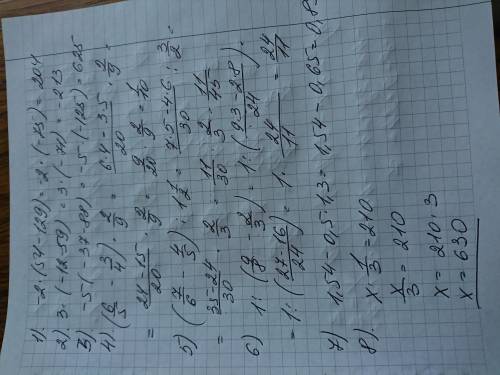 1). -2·(54-129) = -2·(-75) = 204
2) 3·(-12-59) = 3·(-71) = -213
3) -5(-37-88) = -5·(-125) = 625
4) (6/5 - 3/4)·2/9 = (6·4-3·5)/20 · 2/9 =
= (24-15)/20 · 2/9 = 9/20 · 2/9 = 1/10
5) (7/6 - 4/5) : 1 1/2 = (7·5-4·6)/30 : 3/2 =
= (35-24)/30 · 2/3 = 11/30 · 2/3 = 11/45
6) 1:(9/8 - 2/3) = 1:((9·3-2·8)/24) =
= 1:((27-16)/24) = 1· 24/11 = 24/11
7) 1,54-0,5·1,3 = 1,54-0,65 = 0,8
8). x·1/3 = 210
x/3 = 210
x = 210·3
x = 630